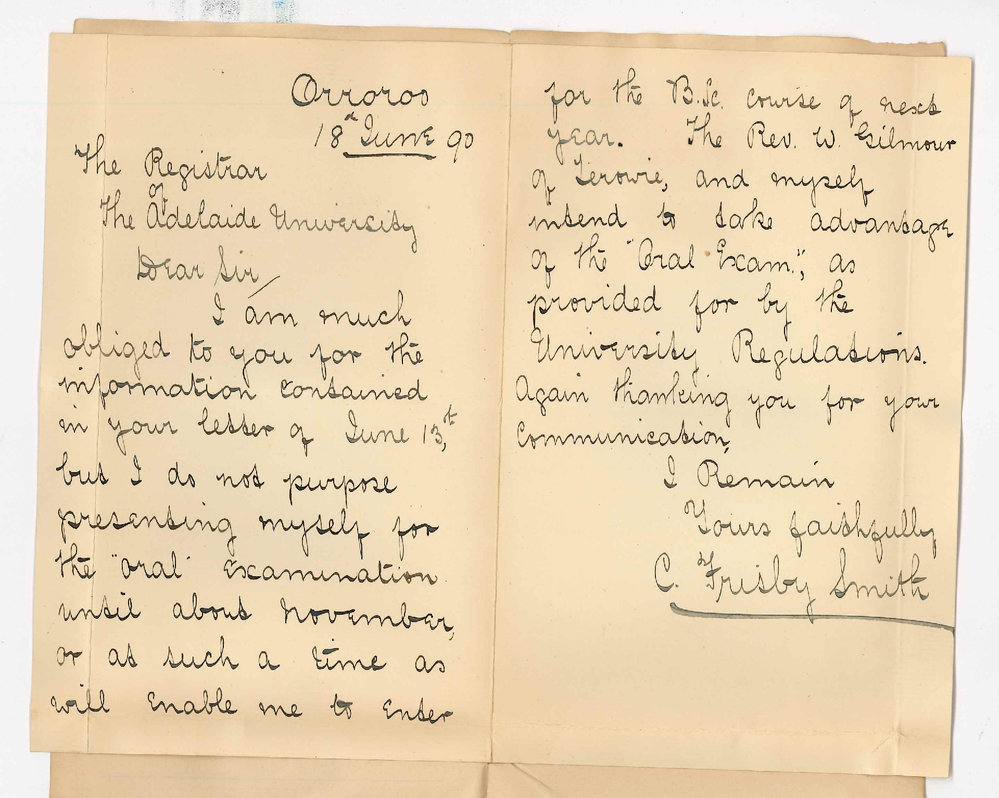 Orroroo
18th June 90
The Registrar
of
The Adelaide University
Dear Sir/
I am much
obliged to you for the
information contained
in your letter of June 13,th
but I do not purpose
presenting myself for
the "oral" Examination
until about November,
or at such a time as
will enable me to enter
for the B.Sc. course of next
year. The Rev. W. Gilmour
of Terowie, and myself
intend to take advantage
of the "Oral Exam.", as
provided for by the
University Regulations.
Again thanking you for your
communication,
I Remain
Yours faithfully
C. Frisby Smith